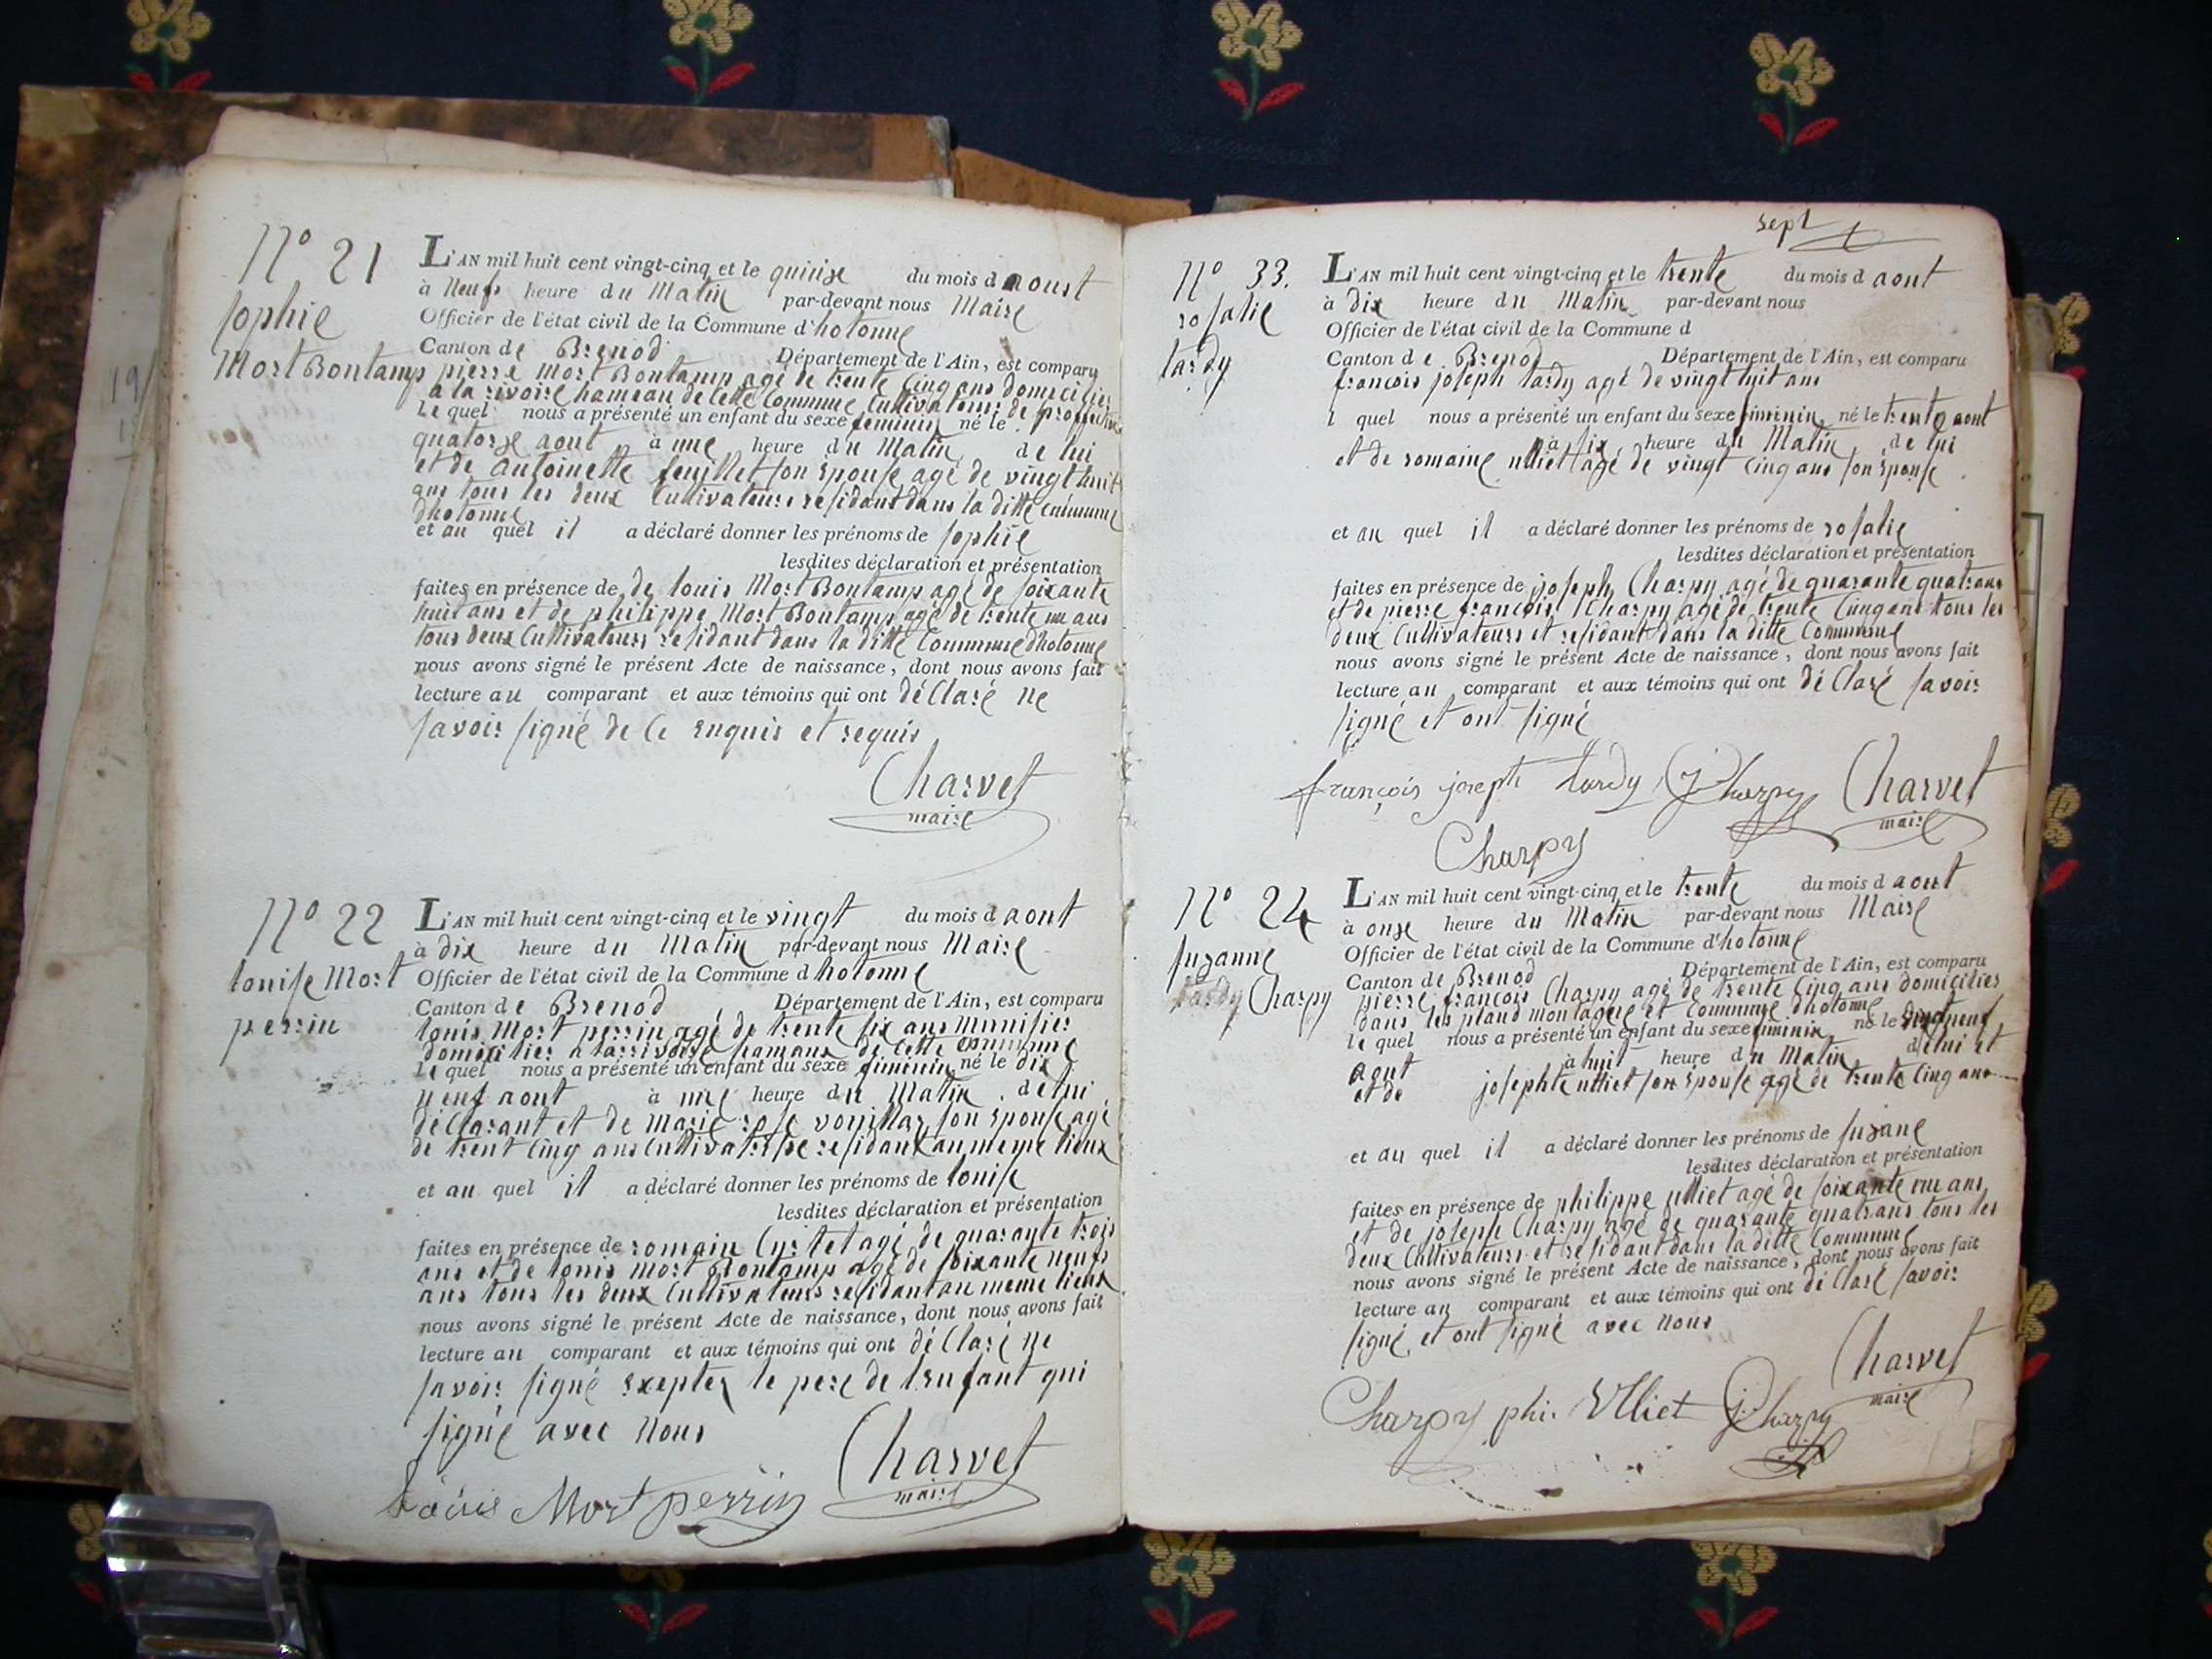 N° 21
Sophie
Mort Bontamp
L'AN mil huit cent vingt-cinq et le quinse du mois d aoust
à Neufs heure du Matin par-devant nous Maire
Officier de l'état civil de la Commune d'hotonne
Canton de Brenod Département de l'Ain, est comparu
pierre Mort Bontamp agé de trente Cinq ans domicilier
a la rivoire hameau de Cette Commune Cultivateur de proffession
Le quel nous a présenté un enfant du sexe feminin né le
quatorse aout à une heure du Matin de lui
et de Antoinette feuillet son epouse agé de vingt huit
ans tous les deux Cultivateurs residant dans la ditte Commune
dhotonne
et au quel il a déclaré donner les prénoms de sophie
lesdites déclaration et présentation
faites en présence de de louis Mort Bontamp agé de soixante
huit ans et de philippe Mort Bontamp agé de trente un ans
tous deux Cultivateurs residant dans la ditte Commune dhotonne
nous avons signé le présent Acte de naissance, dont nous avons fait
lecture au comparant et aux témoins qui ont déClaré ne
savoir signé de Ce enquis et requis
Charvet
maire
N° 22
louise Mort
perrin
L'AN mil huit cent vingt-cinq et le vingt du mois d aout
à dix heure du Matin par-devant nous Maire
Officier de l'état civil de la Commune d hotonne
Canton de Brenod Département de l'Ain, est comparu
louis Mort perrin agé de trente six ans Munisier
domicilier a larrivoire hamaux de Cette Commune
Le quel nous a présenté un enfant du sexe feminin né le dix
neuf aout à une heure du Matin de lui
déClarant et de Marie rose vouillaz son epouse agé
de trent Cinq ans Cultivatrisse residant au meme lieux
et au quel il a déclaré donner les prénoms de louise
lesdites déclaration et présentation
faites en présence de romain Curtet agé de quarante trois
ans et de louis Mort Bontamp agé de soixante neufs
ans tous les deux Cultivateurs residant au meme lieux
nous avons signé le présent Acte de naissance, dont nous avons fait
lecture au comparant et aux témoins qui ont déClaré ne
savoir signé exeptez le pere de lenfant qui
signé avec Nous
Charvet
maire
Louis Mort perrin
sept
N° 33.
rosalie
tardy
L'AN mil huit cent vingt-cinq et le trente du mois d aout
à dix heure du Matin par-devant nous
Officier de l'état civil de la Commune d
Canton de Brenod Département de l'Ain, est comparu
françois joseph tardy agé de vingt huit ans
l quel nous a présenté un enfant du sexe feminin né le trente aout
à six heure du Matin de lui
et de romaine ulliet agé de vingt Cinq ans son epouse
et au quel il a déclaré donner les prénoms de rosalie
lesdites déclaration et présentation
faites en présence de joseph Charpy agé de quarante quatr ans
et de pierre francois Charpy agé de trente Cinq ans tous les
deux Cultivateurs et residant dans la ditte Commune
nous avons signé le présent Acte de naissance, dont nous avons fait
lecture au comparant et aux témoins qui ont déClaré savoir
signé et ont signé
françois joseph tardy J Charpy Charvet
maire
Charpy
N° 24
suzanne
tardy Charpy
L'AN mil huit cent vingt-cinq et le trente du mois d aout
à onse heure du Matin par-devant nous Maire
Officier de l'état civil de la Commune d'hotonne
Canton de Brenod Département de l'Ain, est comparu
pierre francois Charpy agé de trente Cinq ans domicilies
dans les pland montagne et Commune dhotonne
le quel nous a présenté un enfant du sexe feminin né le vingtneuf
aout à huit heure du Matin de lui et
et de josephte ulliet son epouse agé de trente Cinq ans
et au quel il a déclaré donner les prénoms de suzane
lesdites déclaration et présentation
faites en présence de philippe ulliet agé de soixante un ans,
et de joseph Charpy agé de quarante quatr ans tous les
deux Cultivateurs et residant dans la ditte Commune
nous avons signé le présent Acte de naissance, dont nous avons fait
lecture au comparant et aux témoins qui ont déClaré savoir
signé et ont signé avec Nous
Charvet
maire
Charpy phi. Ulliet J Charpy